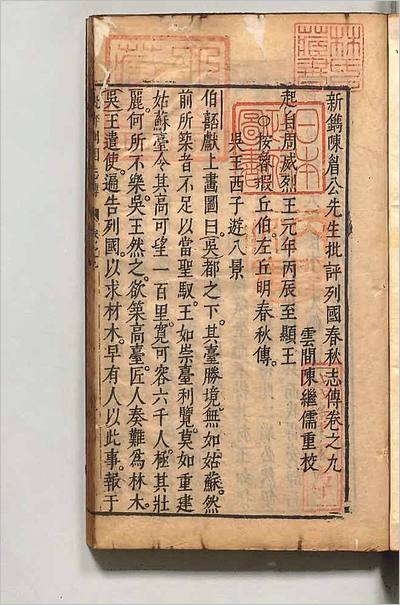 新鐫陳眉公先生批評列國春秋志傳卷之九
雲間陳繼儒重校
起自周威烈王元年丙辰至顯王
按瞽瞍丘伯左丘明春秋傳
吳王西子遊八景
伯嚭獻上畫圖曰吳都之下其臺勝境無如姑蘇然
前所築者不足以當聖馭王如崇臺利覽莫如重建
姑蘇臺令其高可望一百里寬可容六千人極其壯
麗何所不樂吳王然之欲築高臺匠人奏難爲林木
吳王遣使遍告列國以求材木早有人以此事報于
林氏藏書
日本
圖書